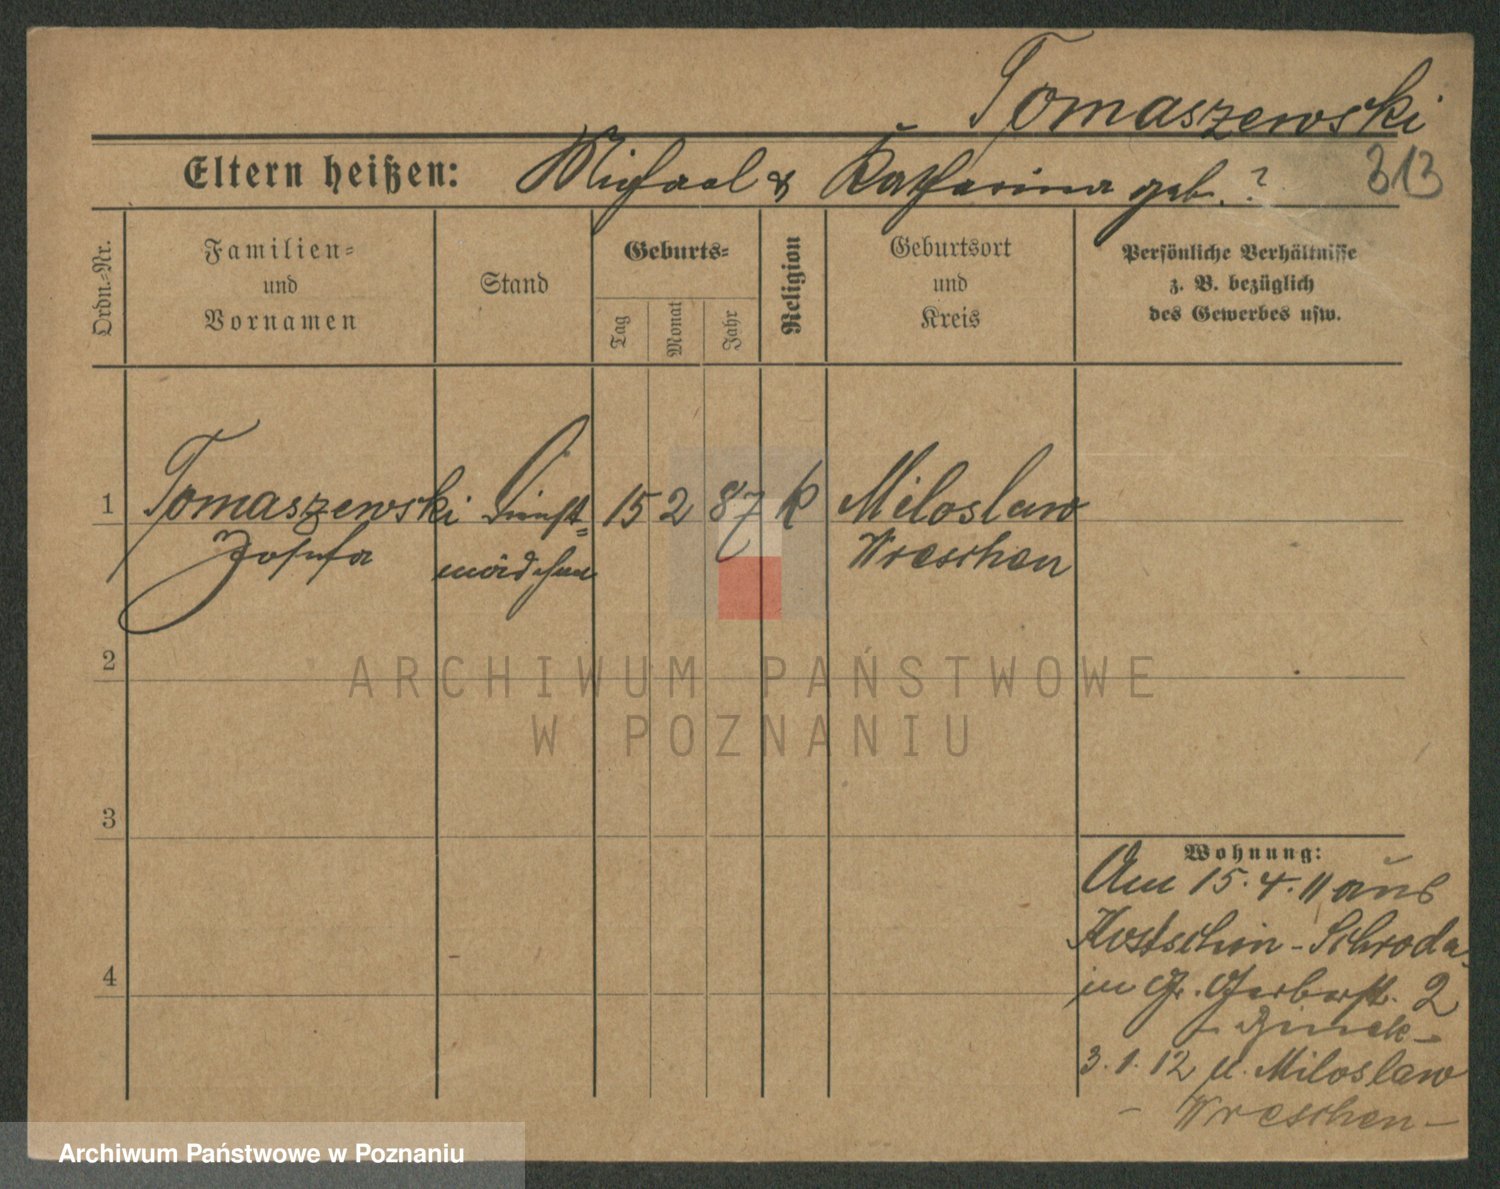 Tomaszewski
313
Eltern heißen: Michael & Katharina geb. ?
Ordn.=Nr.
Familien=
und
Vornamen
Stand
Geburts=
Tag
Monat
Jahr
Religion
Geburtsort
und
Kreis
Persönliche Verhältnisse
z. B. bezüglich
des Gewerbes usw.
1 Tomaszewski Dienst= 15 2 87 k Miloslaw
Josefa mädchen Wreschen
2
ARCHIWUM PAŃSTWOWE
W POZNANIU
3
Wohnung:
Am 15.4.11 aus
Kostschin - Schroda
in Gr. Gerberstr. 2
3.1.12 n. Miloslaw
- Wreschen -
4
Archiwum Państwowe w Poznaniu